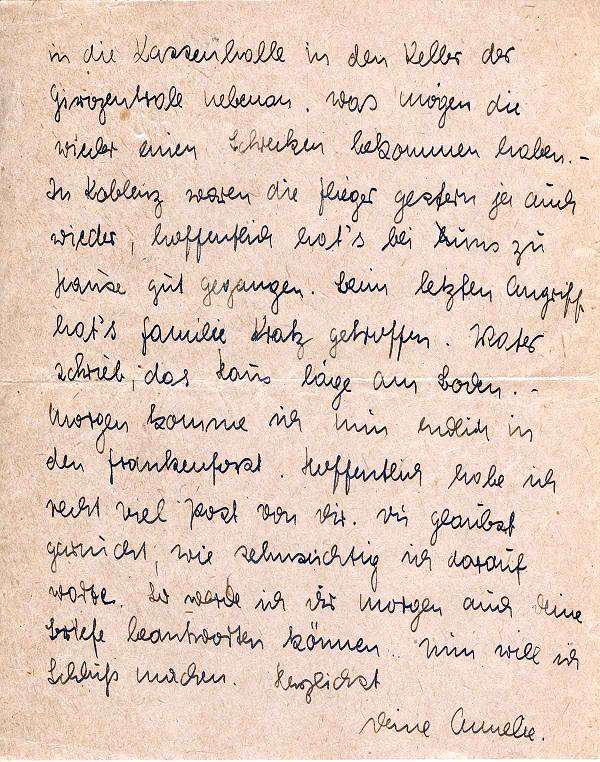 in die Kassenhalle in den Keller der
Girozentrale nebenan. Was mögen die
wieder einen Schrecken bekommen haben.-
In Koblenz waren die Flieger gestern ja auch
wieder, hoffentlich hat's bei uns zu
Hause gut gegangen. Beim letzten Angriff
hat's Familie Kratz getroffen. Vater
schrieb, das Haus läge am Boden.-
Morgen komme ich nun endlich in
den Frankenforst. Hoffentlich habe ich
recht viel Post von Dir. Du glaubst
garnicht, wie sehnsüchtig ich darauf
warte. Da werde ich Dir morgen auch Deine
Briefe beantworten können. Nun will ich
Schluß machen. Herzlichst
Deine